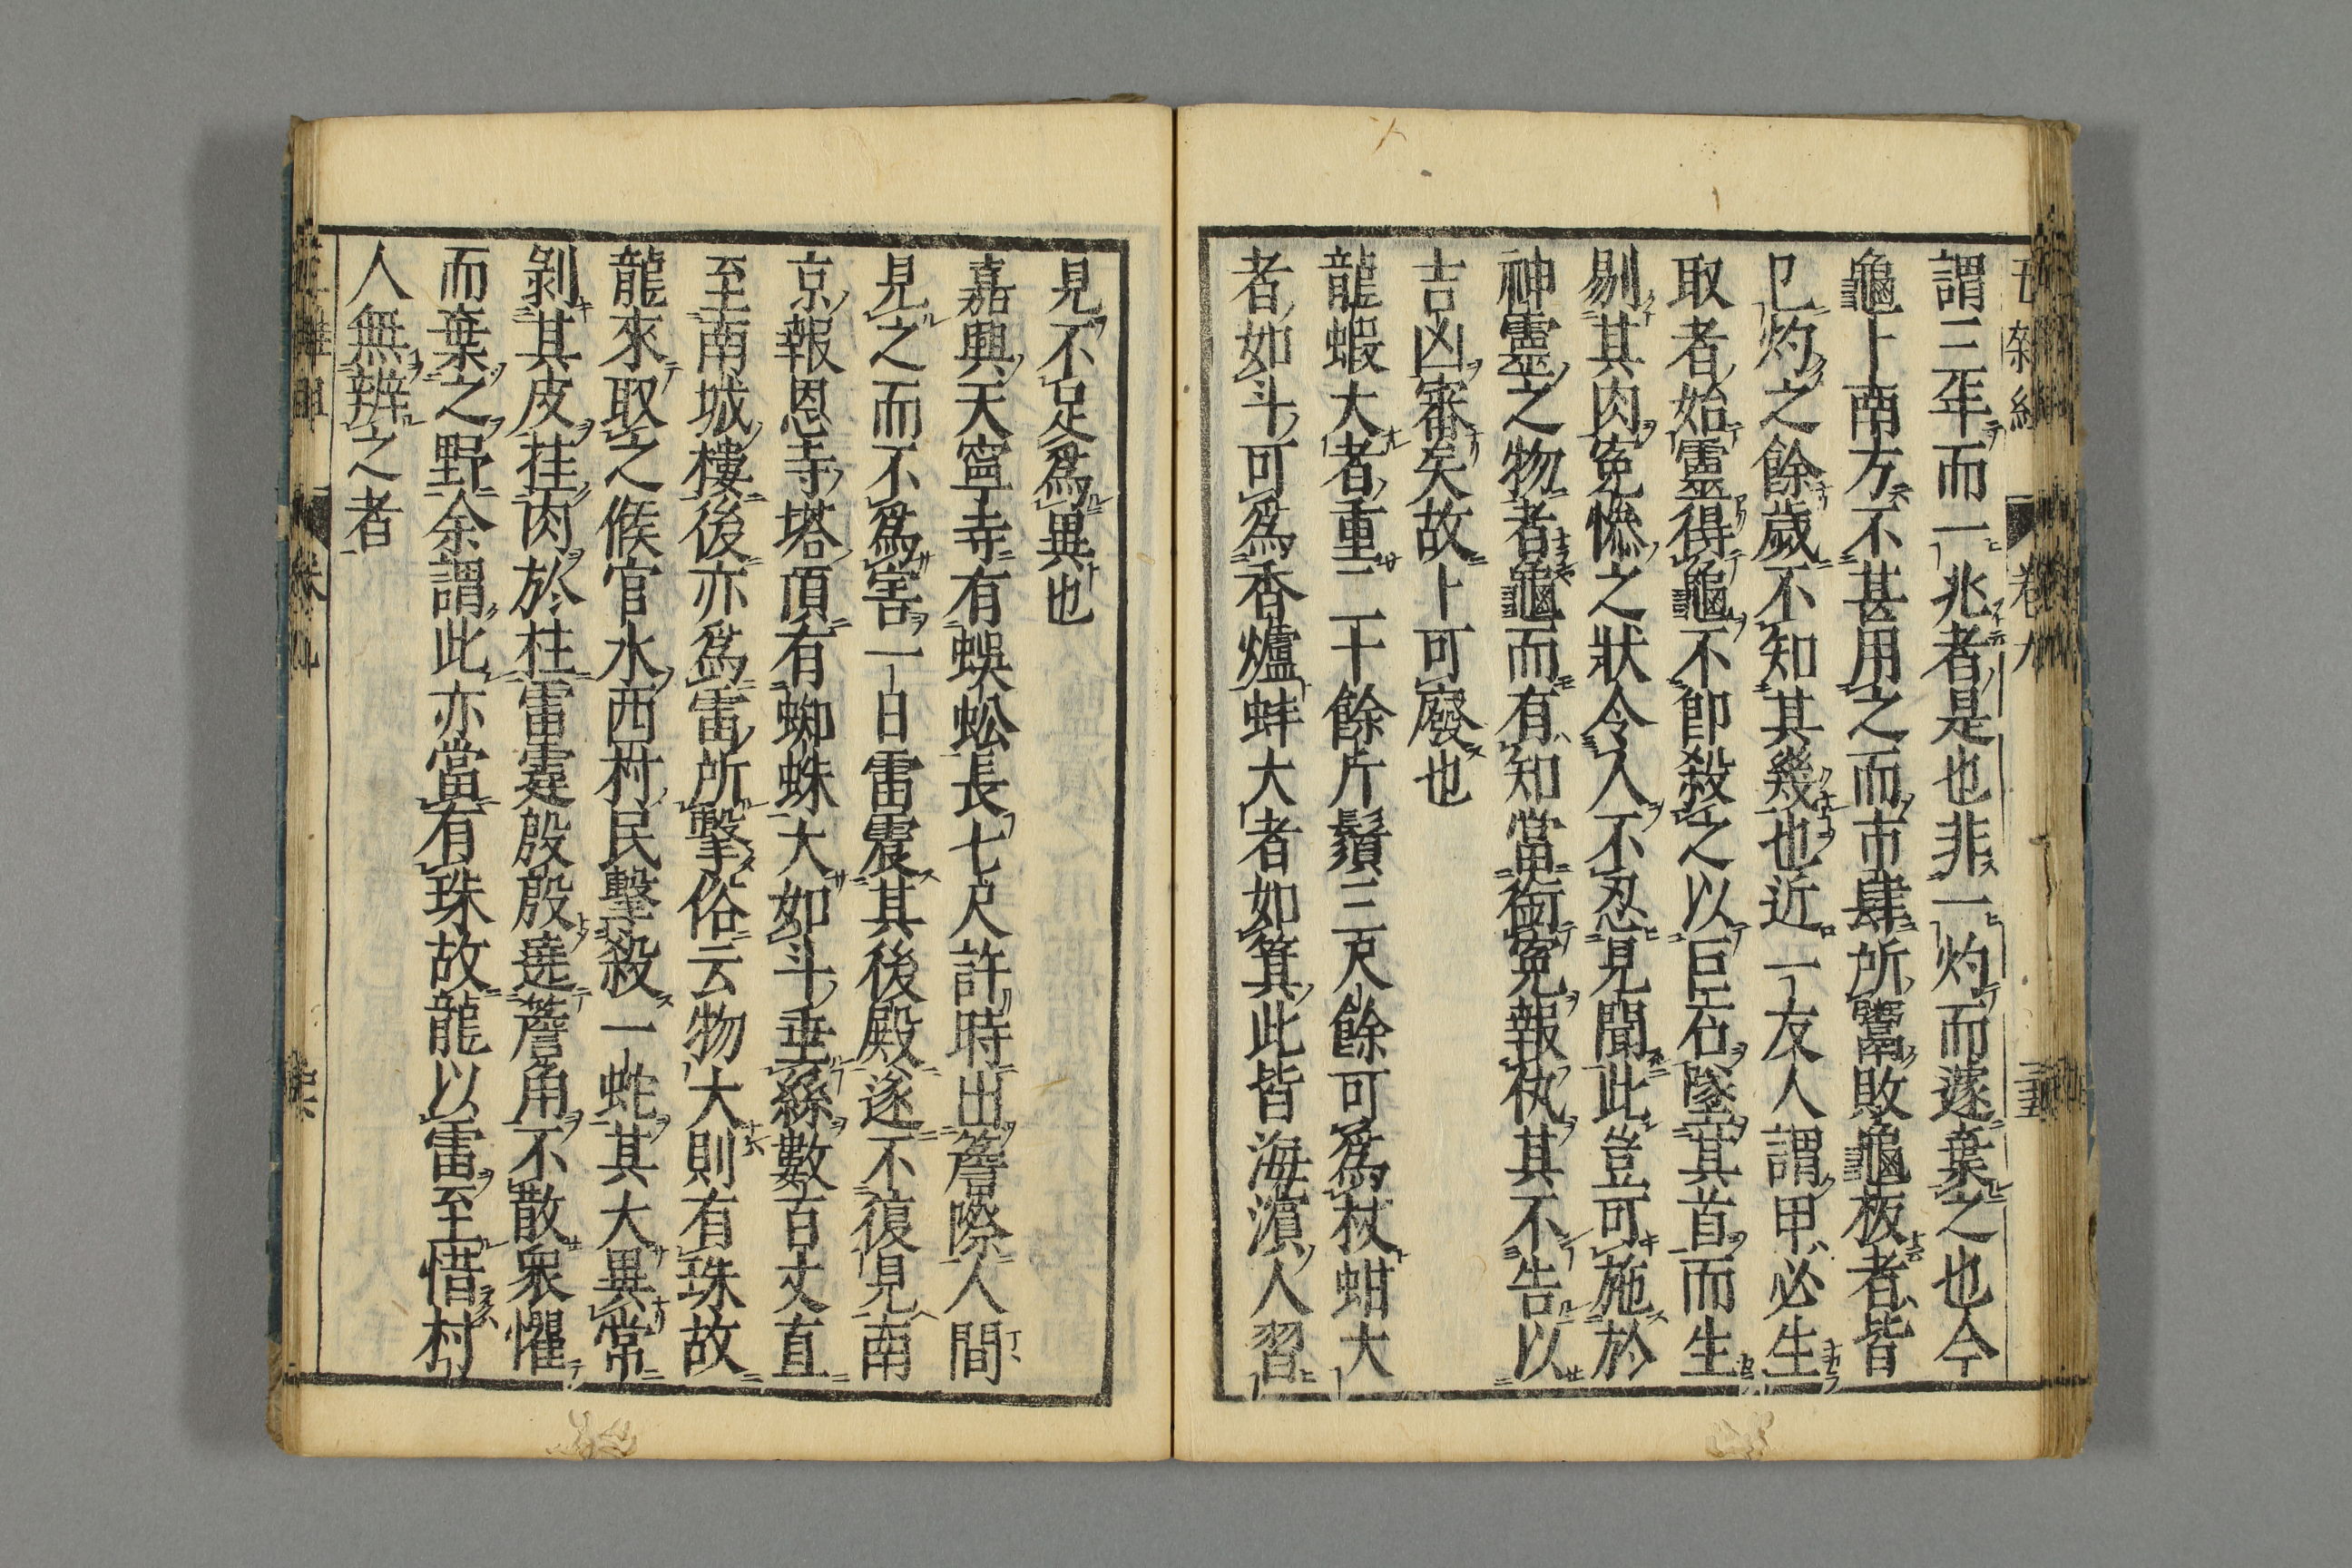 謂三年而一兆者是也非一灼而遂棄之也今
龜卜南方不甚用之而市肆所鬻敗龜板者皆
已灼之餘歲不知其幾也近一友人謂甲必生
取者始靈得龜不卽殺之以巨石墜其首而生
剔其肉寃慘之狀令人不忍見聞此豈可施於
神靈之物者龜而有知當銜寃報仇其不告以
吉凶審矣故卜可廢也
龍蝦大者重二十餘斤鬚三尺餘可爲杖蚶大
者如斗可爲香爐蚌大者如箕此皆海濵人習
見不足爲異也
嘉興天寧寺有蜈蚣長七尺許時出簷際人間
見之而不爲害一日雷震其後殿遂不復見南
京報恩寺塔頂有蜘蛛大如斗垂絲數百丈直
至南城樓後亦爲雷所擊俗云物大則有珠故
龍來取之候官水西村民擊殺一蛇其大異常
剝其皮挂肉於柱雷霆殷殷遶簷角不散衆懼
而棄之野余謂此亦當有珠故龍以雷至惜村
人無辨之者